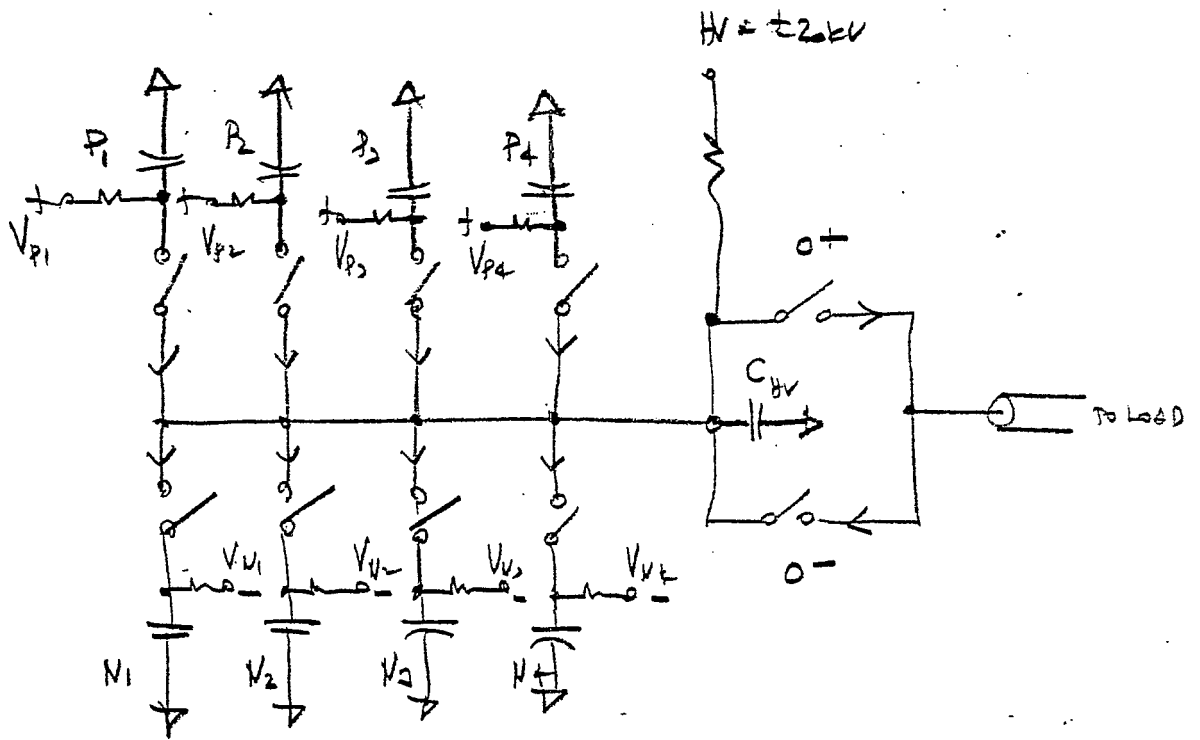 HV = ±20kV
P1
P2
P3
P4
+
+
+
+
VP1
VP2
VP3
VP4
O+
CHV
TO LOAD
O-
VN1
VN2
VN3
VN4
-
-
-
-
N1
N2
N3
N4